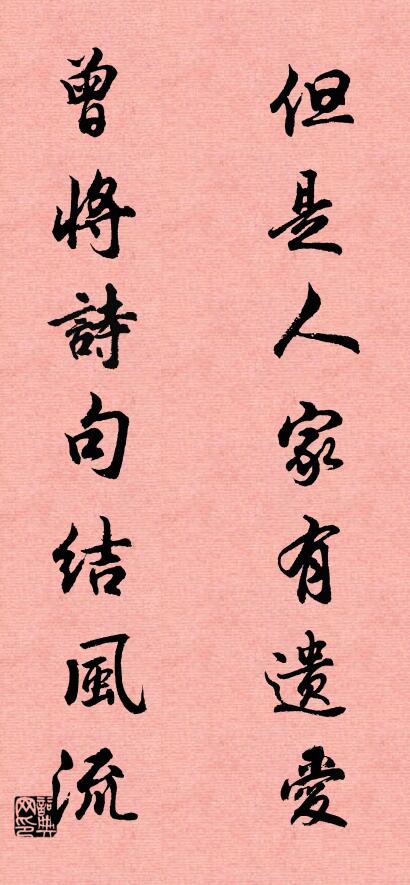 但是人家有遺愛
曾將詩句結風流